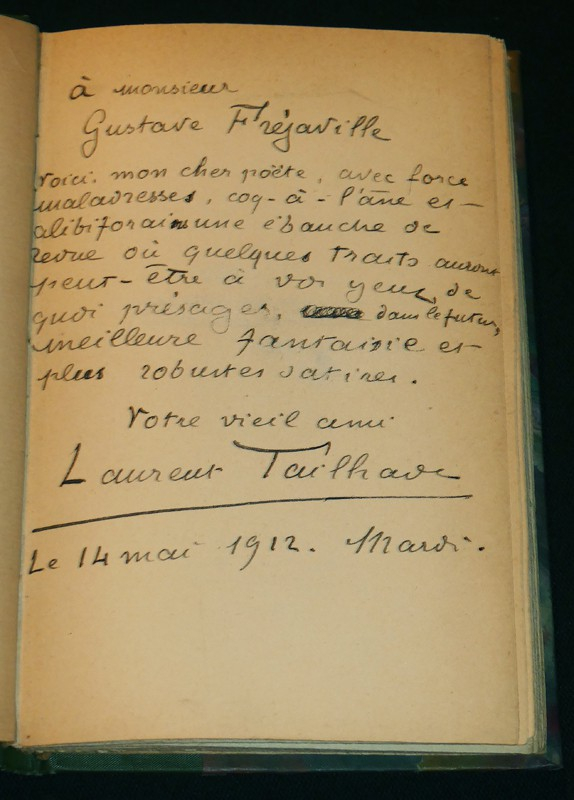 à monsieur
Gustave Fréjaville
Voici, mon cher poëte, avec force
maladresses, coq-à-l'âne et
alibiforains une ébauche de
revue où quelques traits auront
peut-être à vos yeux, de
quoi présager, dans le futur,
meilleure fantaisie et
plus robustes satires.
Votre vieil ami
Laurent Tailhade
Le 14 mai 1912. Mardi.